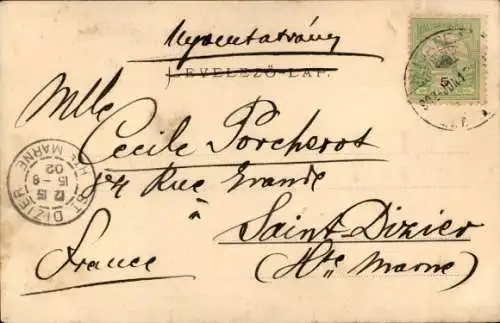 Nyomtatvány
LEVELEZŐ-LAP.
Mlle
Cecile Porcherot
84 Rue Grande
à
Saint-Dizier
France
(Hte Marne)
ST DIZIER
HTE MARNE
15 - 8
02
5